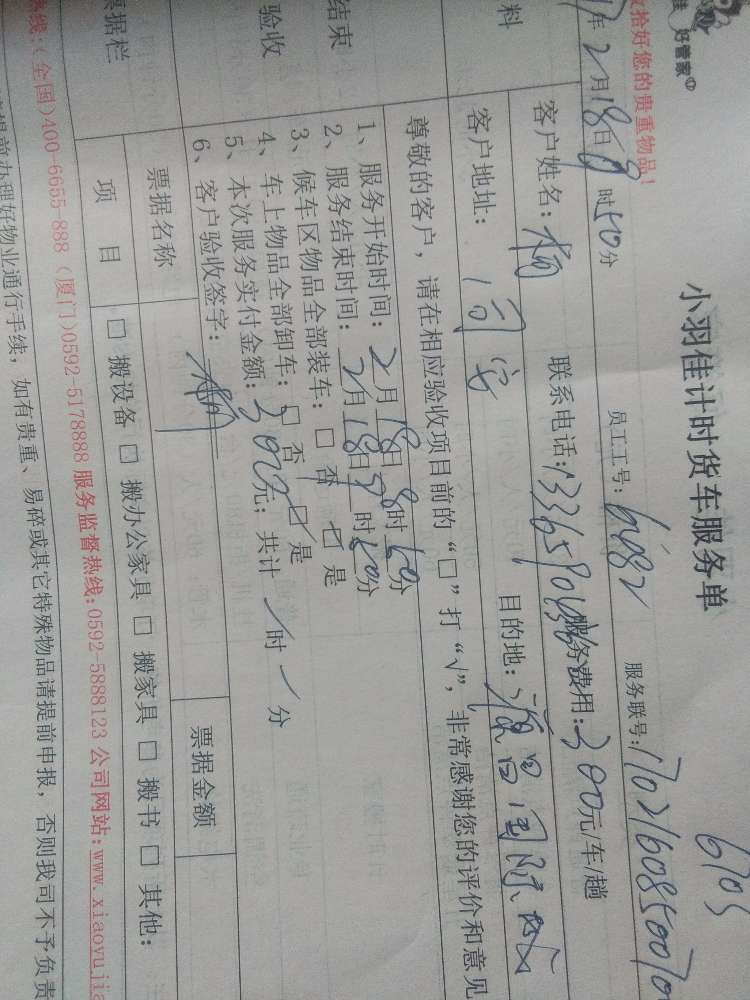 佳 好管家
小羽佳计时货车服务单
6705
收拾好您的贵重物品!
年2月18日8时50分 员工工号: 6482 服务联号: 170216085007
料 客户姓名: 杨 联系电话: 服务费用: 300元/车/趟
客户地址: 同安 目的地: 国际
尊敬的客户,请在相应验收项目前的“□”打“√”,非常感谢您的评价和意见
结束
验收
1、服务开始时间: 2月18日8时50分
2、服务结束时间: 2月18日9时50分
3、候车区物品全部装车: □ 否 ☑ 是
4、车上物品全部卸车: □ 否 ☑ 是
5、本次服务实付金额: 300元; 共计 / 时 / 分
6、客户验收签字: 杨
票据栏 票据名称 票据金额
项 目 □ 搬设备 □ 搬办公家具 □ 搬家具 □ 搬书 □ 其他:
热线:(全国)400-6655-888 (厦门)0592-5178888 服务监督热线:0592-5888123 公司网站:www.xiaoyujia
提前办理好物业通行手续,如有贵重、易碎或其它特殊物品请提前申报,否则我司不予负责